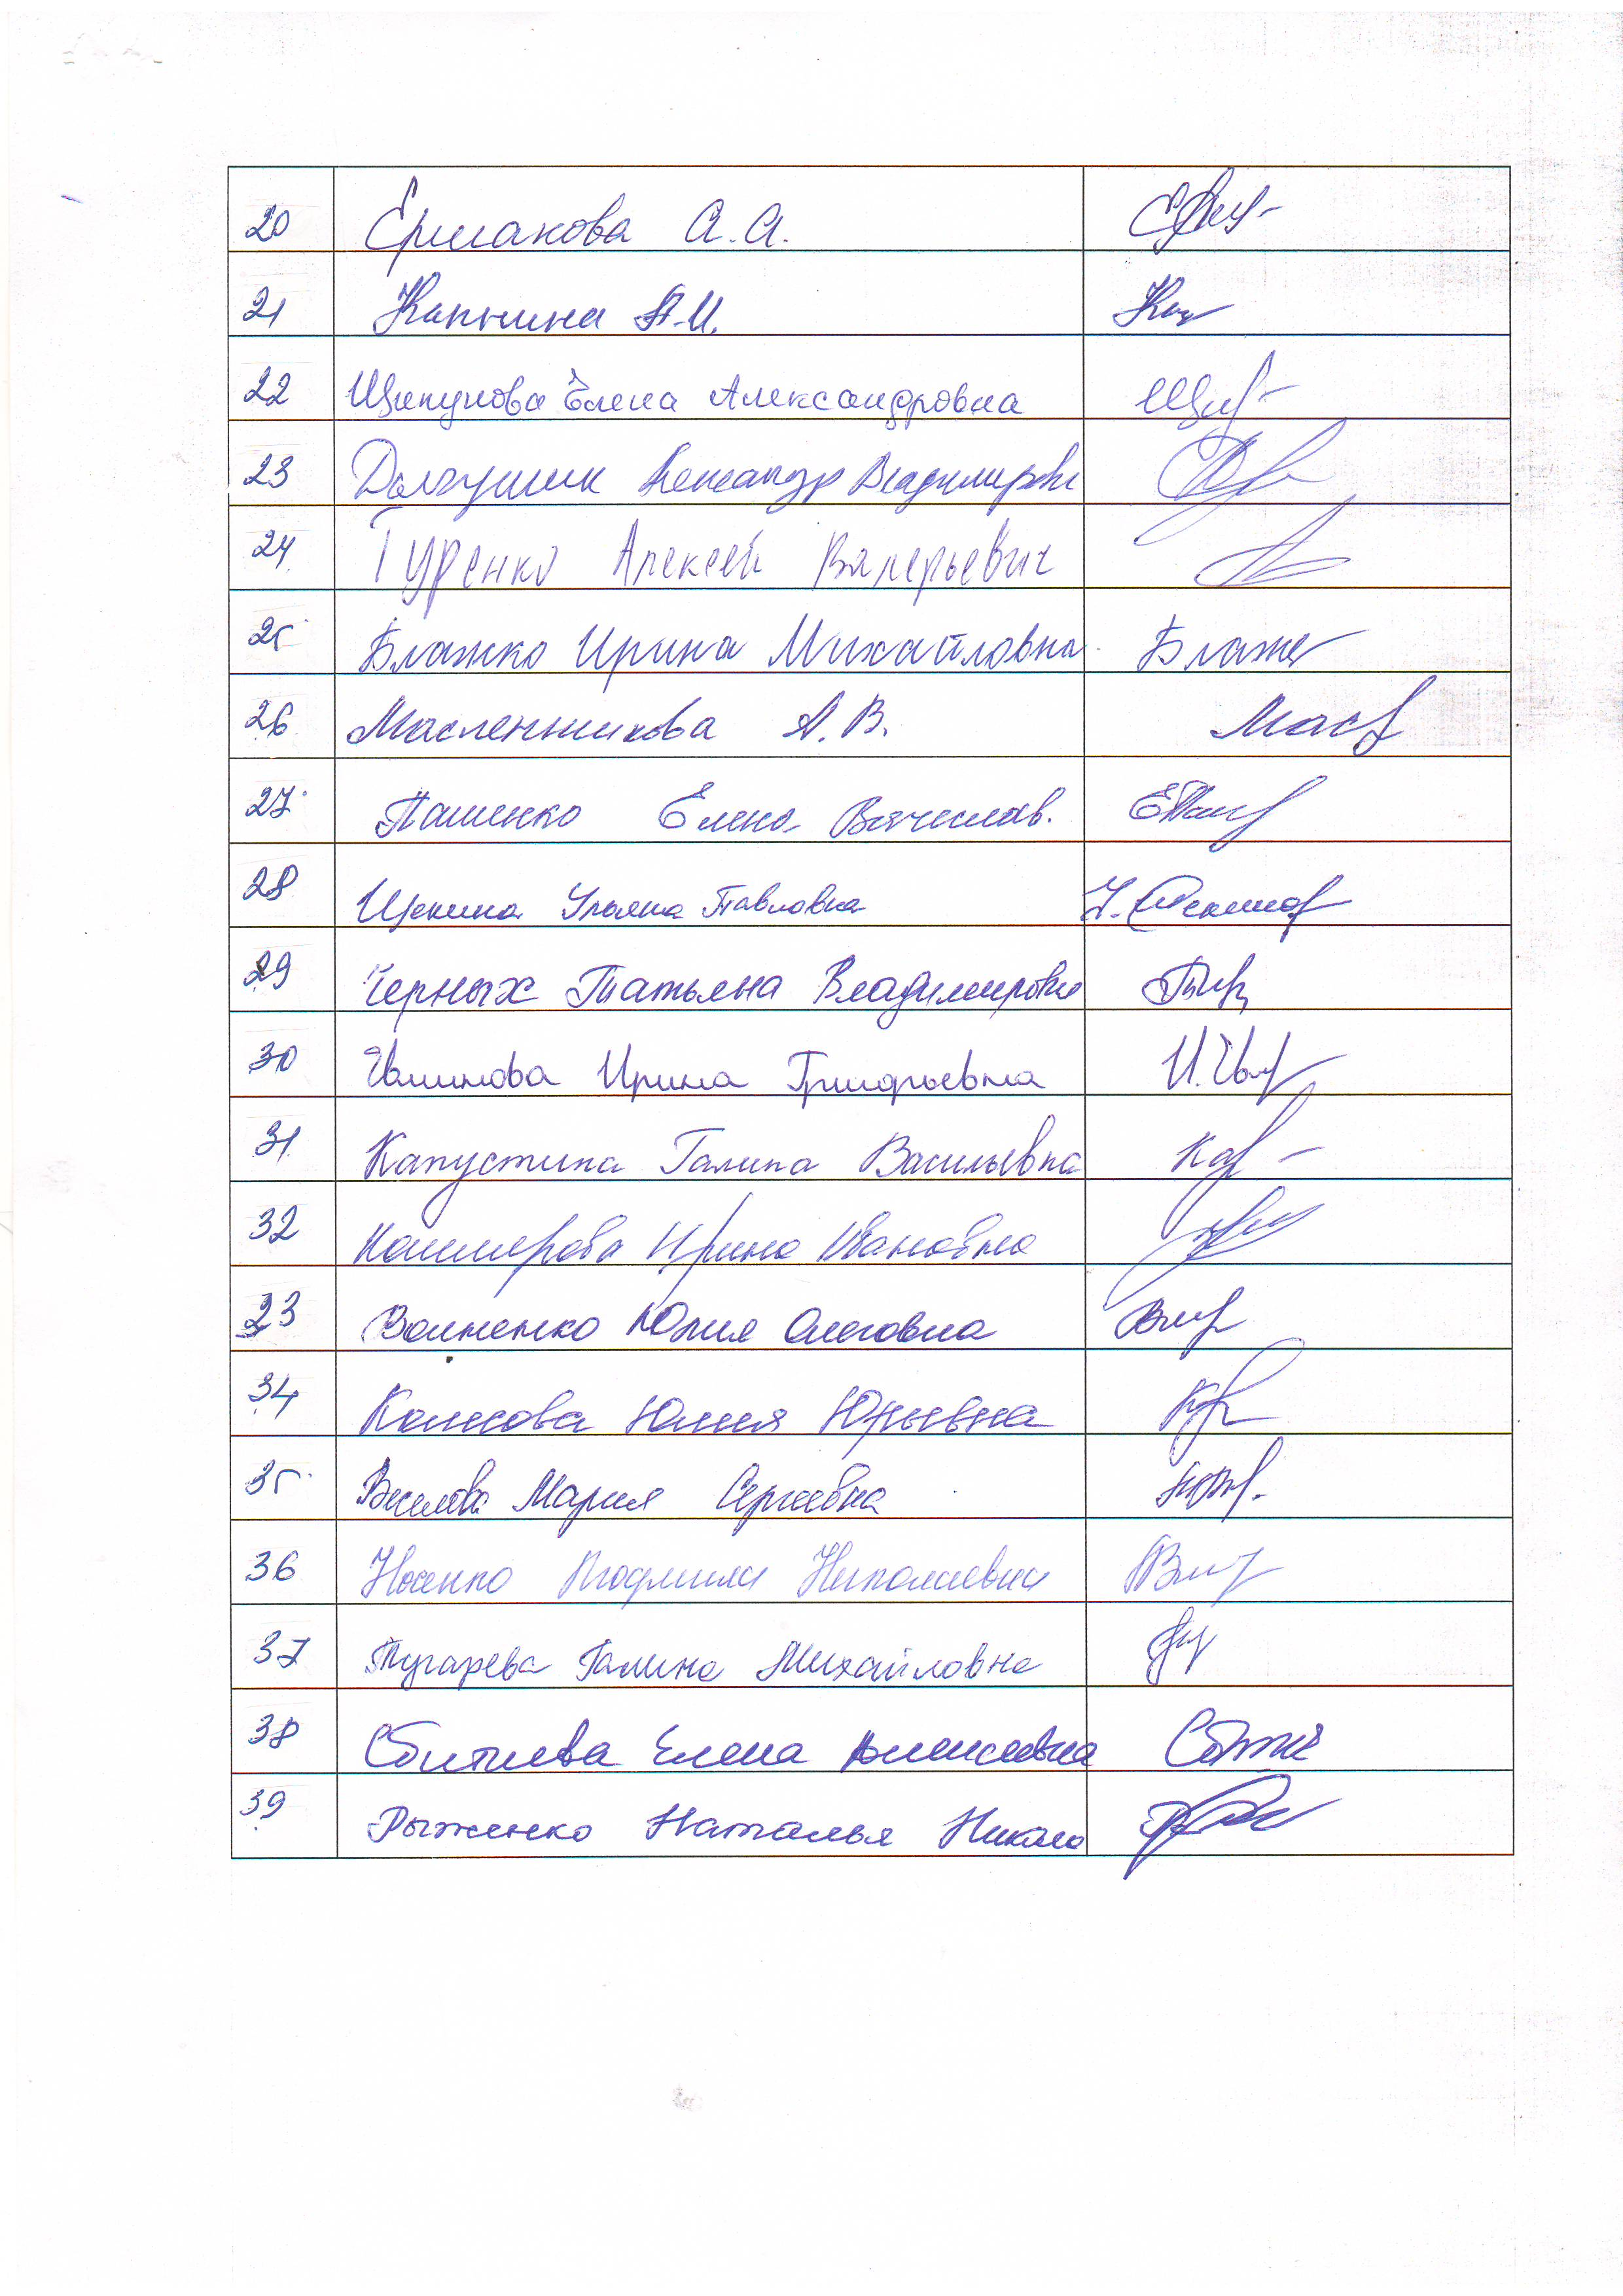 20 Ермакова А.А.
21 Капнина А.И.
22 Щипунова Елена Александровна
23 Долгушин Александр Владимирович
24 Гуренко Алексей Валерьевич
25 Блажко Ирина Михайловна Блаж
26 Масленникова А.В. Мас
27 Пашенко Елена Вячеслав.
28 Щекина Ульяна Павловна
29 Черных Татьяна Владимировна
30 Ирина Григорьевна
31 Капустина Галина Васильевна
32 Кашмерова Ирина Ивановна
33 Юлия Олеговна
34 Юлия Юрьевна
35 Веселова Мария Сергеевна
36 Носенко Людмила Николаевна
37 Пугарева Галина Михайловна
38 Сбитнева Елена Алексеевна
39 Рыженко Наталья Никола